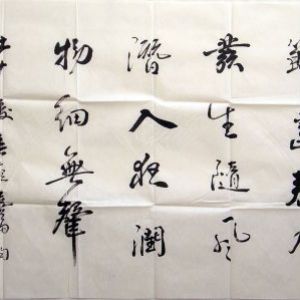 節當春乃
發生隨風
潛入夜潤
物細無聲